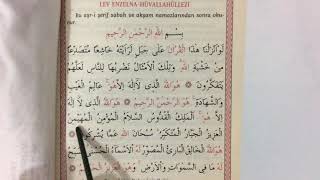 LEV ENZELNA-HÜVALLAHÜLLEZİ
Bu aşr-i şerif sabah ve akşam namazlarından sonra oku-
nur.
بِسْمِ اللهِ الرَّحْمٰنِ الرَّحِيمِ
لَوْ اَنْزَلْنَا هٰذَا الْقُرْاٰنَ عَلٰى جَبَلٍ لَرَاَيْتَهُ خَاشِعًا مُتَصَدِّعًا
مِنْ خَشْيَةِ اللهِ وَتِلْكَ الْاَمْثَالُ نَضْرِبُهَا لِلنَّاسِ لَعَلَّهُمْ
يَتَفَكَّرُونَ هُوَ اللهُ الَّذِى لَا اِلٰهَ اِلَّا هُوَ عَالِمُ الْغَيْبِ
وَالشَّهَادَةِ هُوَ الرَّحْمٰنُ الرَّحِيمُ هُوَ اللهُ الَّذِى لَا اِلٰهَ
اِلَّا هُوَ اَلْمَلِكُ الْقُدُّوسُ السَّلَامُ الْمُؤْمِنُ الْمُهَيْمِنُ
الْعَزِيزُ الْجَبَّارُ الْمُتَكَبِّرُ سُبْحَانَ اللهِ عَمَّا يُشْرِكُونَ
هُوَ اللهُ الْخَالِقُ الْبَارِئُ الْمُصَوِّرُ لَهُ الْاَسْمَاءُ الْحُسْنٰى يُسَبِّحُ
لَهُ مَا فِى السَّمٰوَاتِ وَالْاَرْضِ وَهُوَ الْعَزِيزُ الْحَكِيمُ